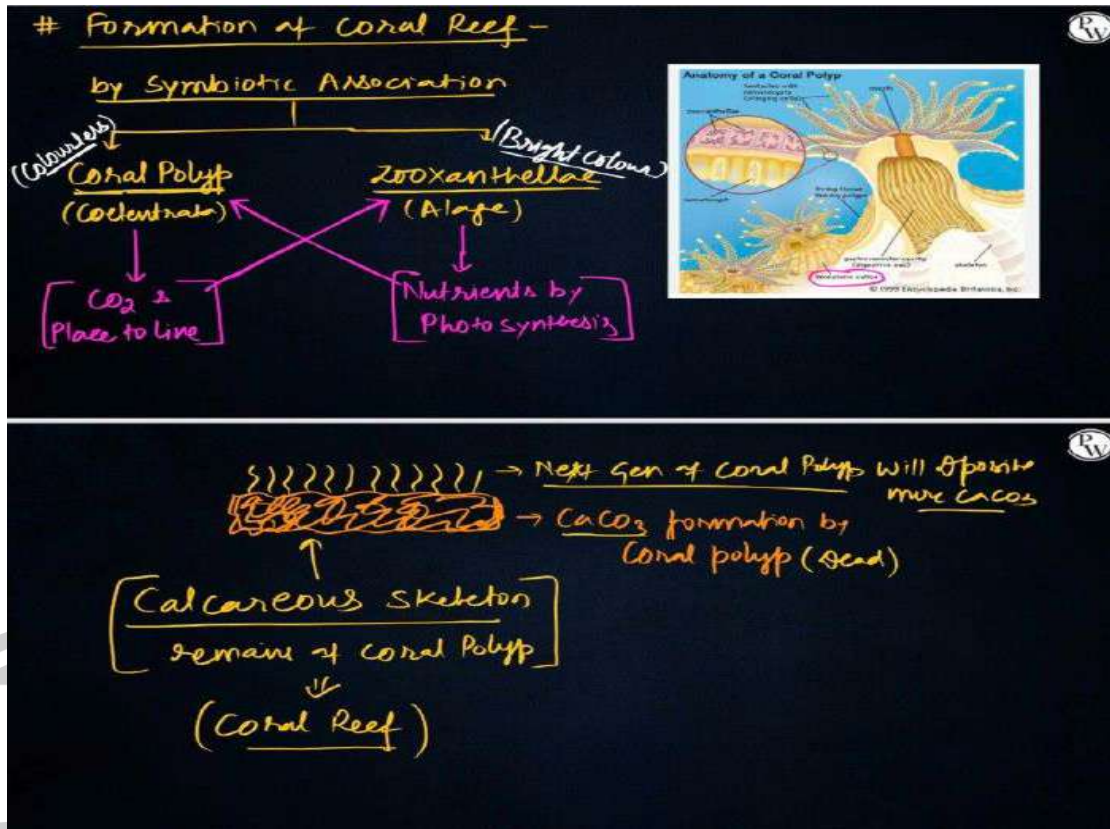 # Formation of Coral Reef -
by Symbiotic Association
(Colourless)
(Bright Colour)
Coral Polyp
Zooxanthellae
(Coelentrata)
(Alage)
[CO2 &
Place to Live]
[Nutrients by
Photosynthesis]
PW
Anatomy of a Coral Polyp
tentacles with
nematocysts
(stinging cells)
mouth
zooxanthellae
nematocyst
living tissue
linking polyps
gastrovascular cavity
(digestive sac)
skeleton
© 1999 Encyclopædia Britannica, Inc.
PW
→ Next Gen of Coral Polyp will
more CaCO3
→ CaCO3 formation by
Coral polyp (Dead)
[Calcareous skeleton
remains of coral Polyp]
(Coral Reef)